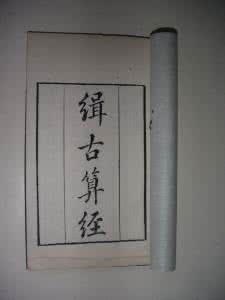 缉古算经